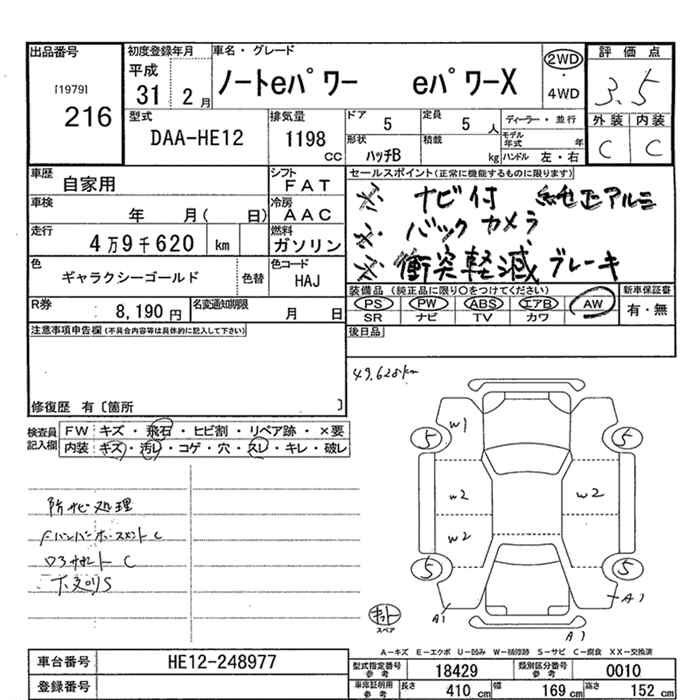 出品番号
[1979]
216
初度登録年月
平成
31 2月
車名・グレード
ノートeパワー eパワーX
2WD
・
4WD
評価点
3.5
外装 内装
C C
型式
DAA-HE12
排気量
1198
CC
ドア
5
定員
5人
形状
ハッチB
積載
kg
ディーラー・並行
モデル年式 年
ハンドル 左・右
車歴
自家用
シフト
FAT
車検
年 月( 日)
冷房
AAC
走行
4万9千620 km
燃料
ガソリン
色
ギャラクシーゴールド
色替
色コード
HAJ
R券
8,190円
名変通知期限
月 日
セールスポイント(正常に機能するものに限ります)
ナビ付 純正アルミ
バックカメラ
衝突軽減ブレーキ
装備品(純正品に限り○をつけてください)
PS PW ABS エアB AW
SR ナビ TV カワ
新車保証書
有・無
後日品
注意事項申告欄(不具合内容等は具体的に記入して下さい)
修復歴 有〔箇所 〕
検査員
記入欄
FW キズ・飛石・ヒビ割・リペア跡・×要
内装 キズ・汚レ・コゲ・穴・スレ・キレ・破レ
防サビ処理
49,628km
W1
5 5
W2 W2
W2
5 5
A1 A1
A1
スペア
A-キズ E-エクボ U-凹み W-補修跡 S-サビ C-腐食 XX-交換済
車台番号
HE12-248977
登録番号
型式指定番号
参考
18429
類別区分番号
参考
0010
車庫証明用
参考
長さ 410cm 幅 169cm 高さ 152cm